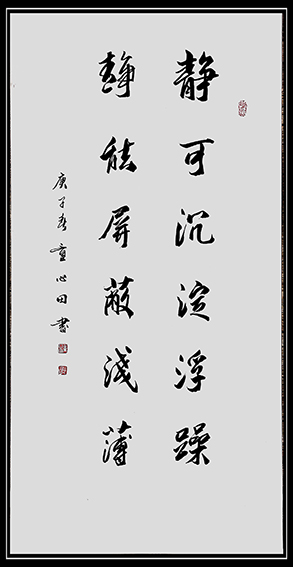 静可沉淀浮躁
静能屏蔽浅薄
庚子春童心田书